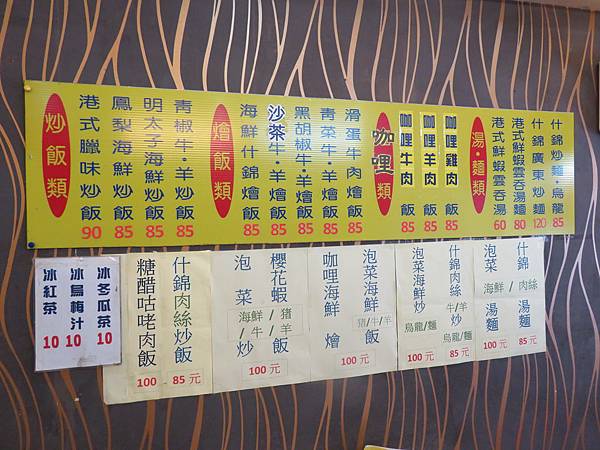 炒飯類
港式臘味炒飯 90
鳳梨海鮮炒飯 85
明太子海鮮炒飯 85
青椒牛·羊炒飯 85
燴飯類
海鮮什錦燴飯 85
沙茶牛·羊燴飯 85
黑胡椒牛·羊燴飯 85
青菜牛·羊燴飯 85
滑蛋牛肉燴飯 85
咖哩類
咖哩牛肉飯 85
咖哩羊肉飯 85
咖哩雞肉飯 85
湯·麵類
港式鮮蝦雲吞湯 60
港式鮮蝦雲吞湯麵 80
什錦廣東炒麵 120
什錦炒麵·烏龍 85
冰紅茶 10
冰烏梅汁 10
冰冬瓜茶 10
糖醋咕咾肉飯 100
什錦肉絲炒飯 85元
泡菜
櫻花蝦
海鮮/豬/牛/羊
炒飯
100元
咖哩海鮮
泡菜海鮮
豬/牛/羊
燴飯
100元
泡菜海鮮炒烏龍/麵 100
什錦肉絲牛/羊炒烏龍/麵 85元
泡菜
什錦
海鮮/肉絲
湯麵
湯麵
100
85元